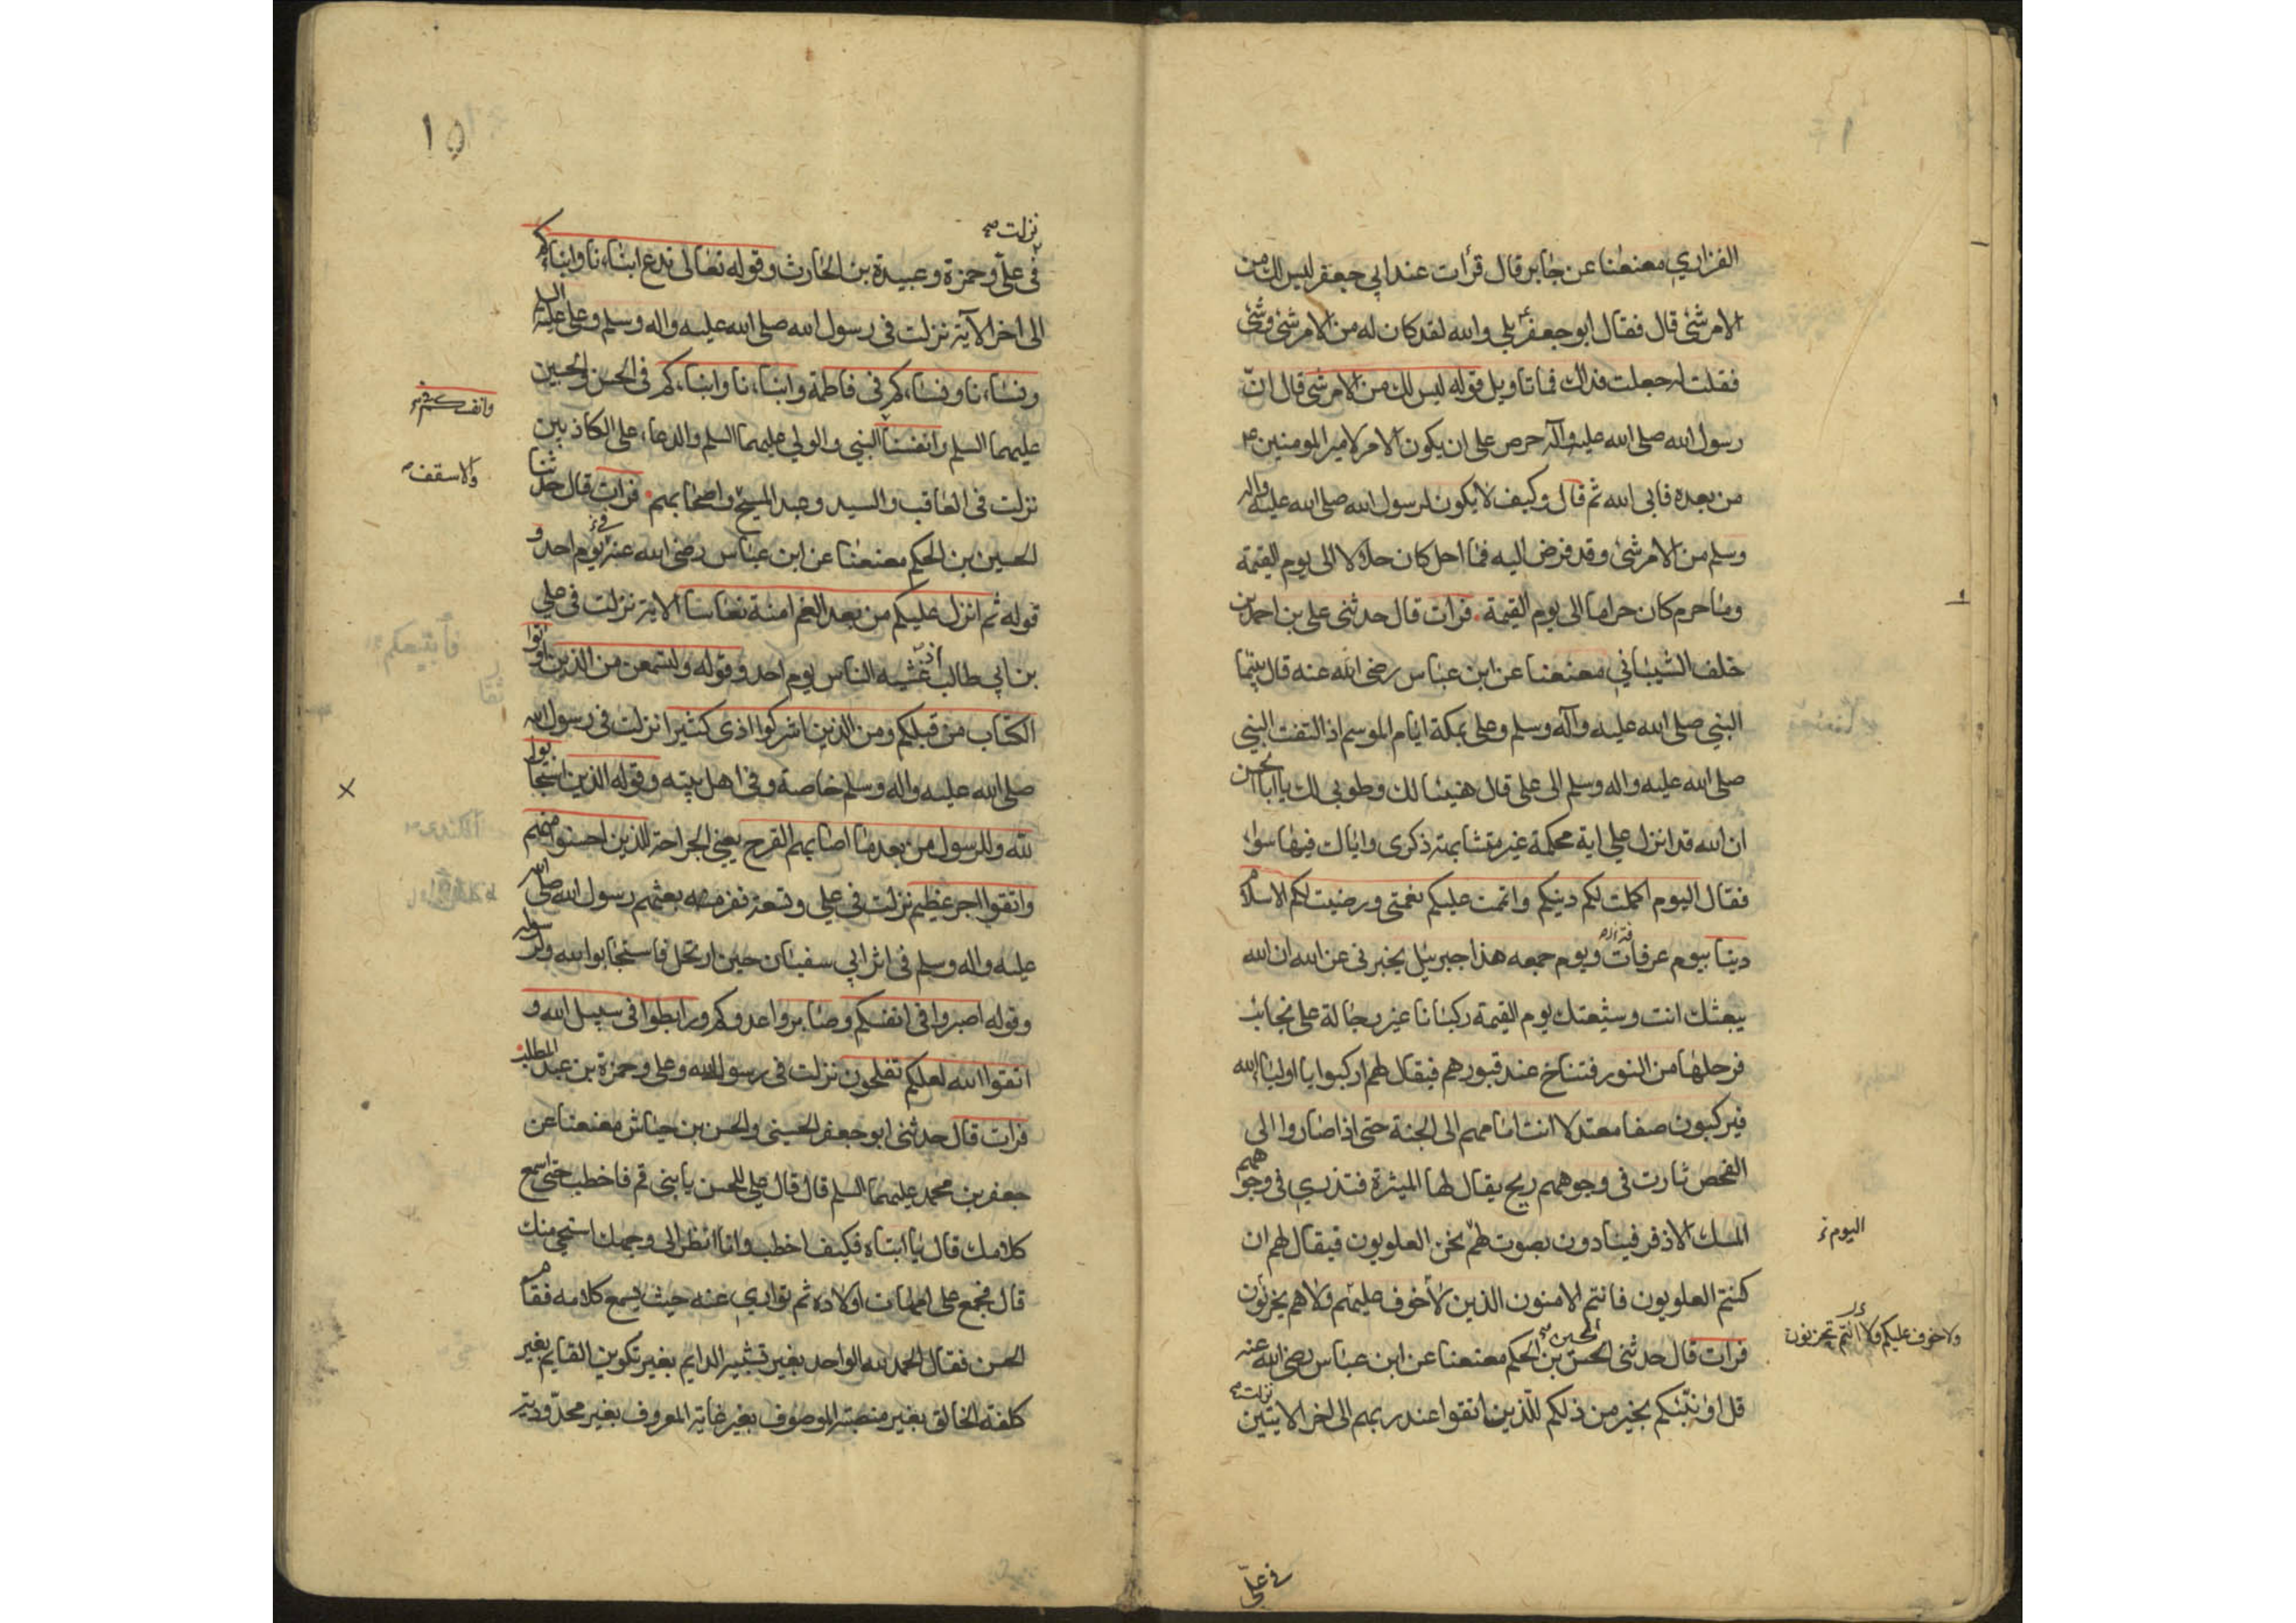 الفزاري معنعنا عن جابر قال قرأت عند ابي جعفر ليس لك من
الامر شئ قال فقال ابو جعفر بلي والله لقد كان له من الامر شئ وشئ
فقلت له جعلت فداك فما تاويل قوله ليس لك من الامر شئ قال ان
رسول الله صلى الله عليه وآله حرص على ان يكون الامر لامير المومنين ع
من بعده فابى الله ثم قال وكيف لا يكون لرسول الله صلى الله عليه واله
وسلم من الامر شئ وقد فرض اليه فما احل كان حلالا الى يوم القيمة
وما حرم كان حراما الى يوم القيمة. فرات قال حدثنى على بن احمد بن
خلف الشيباني معنعنا عن ابن عباس رضى الله عنه قال بينما
النبي صلى الله عليه وآله وسلم وعلى بمكة ايام الموسم اذ التفت النبي
صلى الله عليه واله وسلم الى على قال هنيئا لك وطوبى لك يا ابا الحسن
ان الله قد انزل علي اية محكمة غير متشابهة ذكرى واياك فيها سواء
فقال اليوم اكملت لكم دينكم واتمت عليكم نعمتى ورضيت لكم الاسلام
دينا بيوم عرفات ويوم جمعه هذا جبرئيل يخبرنى عن الله ان الله
يبعثك انت وشيعتك يوم القيمة ركبانا غير رجالة على نجائب
فرحلها من النور فتناخ عند قبورهم فيقال لهم اركبوا يا اولياء الله
فيركبون صفا معتدلا انت امامهم الى الجنة حتى اذا صاروا الى
الفحص ثارت فى وجوههم ريح يقال لها المثيرة فتذري فى وجوههم
المسك الاذفر فينادون بصوت لهم نحن العلويون فيقال لهم ان
اليوم
كنتم العلويون فانتم الامنون الذين لا خوف عليهم ولا هم يحزنون
ولا خوف عليكم ولا انتم تحزنون
الحسين
فرات قال حدثنى الحسن بن الحكم معنعنا عن ابن عباس رضى الله عنه
نزلت
قل اؤنبئكم بخير من ذلكم للذين اتقوا عند ربهم الى اخر الايتين
في علي
١٥
نزلت
فى على وحمزة وعبيدة بن الحارث وقوله تعالى ندع ابناءنا وابناءكم
الى اخر الآية نزلت فى رسول الله صلى الله عليه واله وسلم وعلى عليه السلم
ونساءنا ونساءكم فى فاطمة وابناءنا وابناءكم فى الحسن والحسين
وانفسكم
عليهما السلم وانفسنا النبي والولي عليهما السلم والدعاء على الكاذبين
والاسقف
نزلت فى العاقب والسيد وعبد المسيح واصحابهم. فرات قال حدثنا
الحسين بن الحكم معنعنا عن ابن عباس رضى الله عنه يوم احد و
قوله ثم انزل عليكم من بعد الغم امنة نعاسا الاية نزلت فى على
بن ابي طالب غشيه النعاس يوم احد وقوله ولتسمعن من الذين اوتوا
الكتاب من قبلكم ومن الذين اشركوا اذى كثيرا نزلت فى رسول الله
صلى الله عليه واله وسلم خاصة وفى اهل بيته وقوله الذين استجابوا
لله وللرسول من بعد ما اصابهم القرح يعنى الجراحة للذين احسنوا منهم
واتقوا اجر عظيم نزلت في علي وتسعة نفر معه بعثهم رسول الله صلى الله
عليه واله وسلم فى اثر ابي سفيان حين ارتحل فاستجابوا لله ولرسوله
وقوله اصبروا فى انفسكم وصابروا عدوكم ورابطوا فى سبيل الله و
اتقوا الله لعلكم تفلحون نزلت فى رسول الله وعلى وحمزة بن عبد المطلب
فرات قال حدثنى ابو جعفر الحسينى والحسن بن حباش معنعنا عن
جعفر بن محمد عليهما السلم قال قال علي للحسن يا بنى قم فاخطب حتى اسمع
كلامك قال يا ابتاه فكيف اخطب وانا انظر الى وجهك استحى منك
قال فجمع على امهات اولاده ثم توارى عنه حيث يسمع كلامه فقام
الحسن فقال الحمد لله الواحد بغير تشبيه الدايم بغير تكوين القايم بغير
كلفة الخالق بغير منصبة الموصوف بغير غاية المعروف بغير محدودية